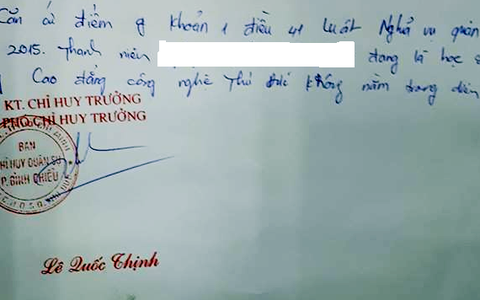 Căn cứ điểm g khoản 1 điều 41 Luật Nghĩa vụ quân
2015. Thanh niên đang là học
Cao đẳng công nghệ Thủ Đức không nằm trong diện
KT. CHỈ HUY TRƯỞNG
PHÓ CHỈ HUY TRƯỞNG
BAN
CHỈ HUY QUÂN SỰ
P. BÌNH CHIỂU
Lê Quốc Thịnh